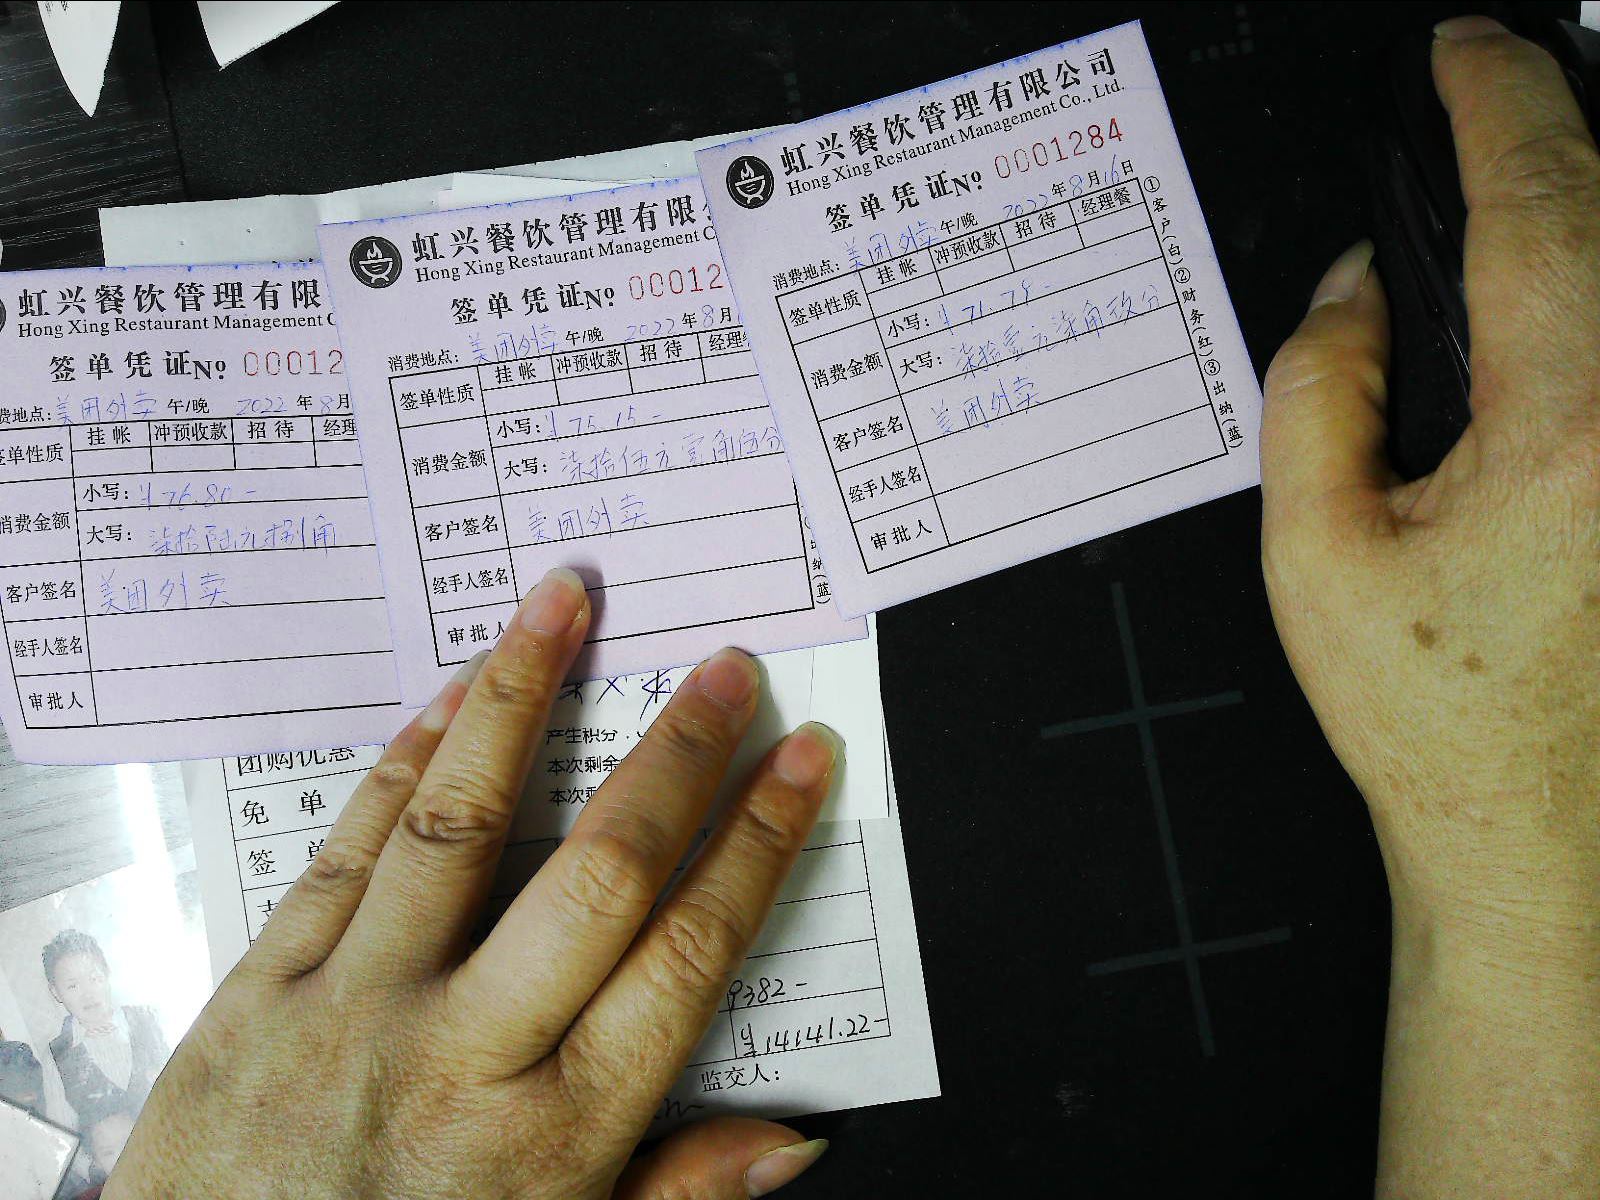 虹兴餐饮管理有限
Hong Xing Restaurant Management C
签单凭证No 00012
费地点: 美团外卖 午/晚 2022年8月
签单性质 挂帐 冲预收款 招待 经理
消费金额 小写: ¥76.80-
大写: 柒拾陆元捌角
客户签名 美团外卖
经手人签名
审批人
虹兴餐饮管理有限
Hong Xing Restaurant Management C
签单凭证No 00012
消费地点: 美团外卖 午/晚 2022年8月
签单性质 挂帐 冲预收款 招待 经理
消费金额 小写: ¥75.15-
大写: 柒拾伍元壹角伍分
客户签名 美团外卖
经手人签名
审批人
纳(蓝)
虹兴餐饮管理有限公司
Hong Xing Restaurant Management Co., Ltd.
签单凭证No 0001284
消费地点: 美团外卖 午/晚 2022年8月16日
签单性质 挂帐 冲预收款 招待 经理餐
消费金额 小写: ¥71.79-
大写: 柒拾壹元柒角玖分
客户签名 美团外卖
经手人签名
审批人
①客户(白)②财务(红)③出纳(蓝)
产生积分:
本次剩余
本次剩
团购优惠
免单
签单
9382-
¥14141.22-
监交人: